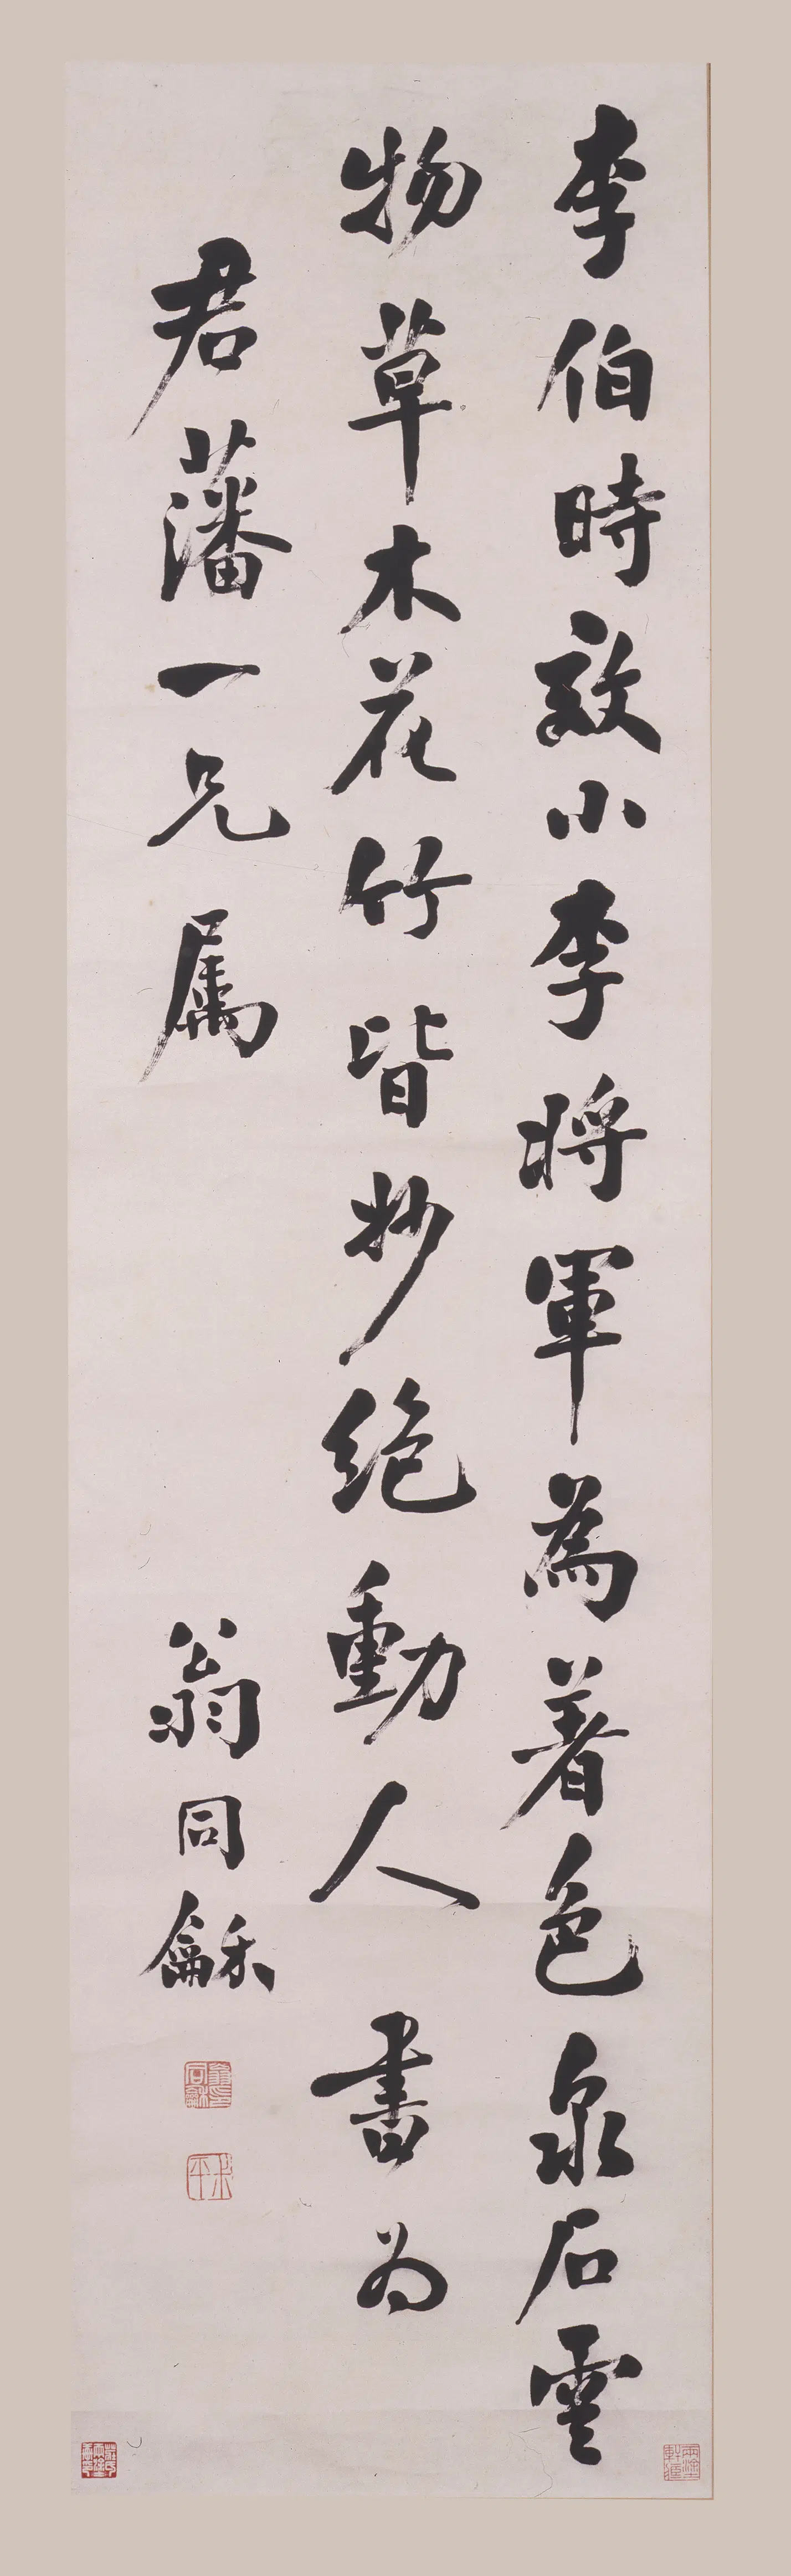 李伯時效小李將軍為著色泉石雲
物草木花竹皆妙絶動人 書为
君藩一兄属 翁同龢
翁同龢印
叔平